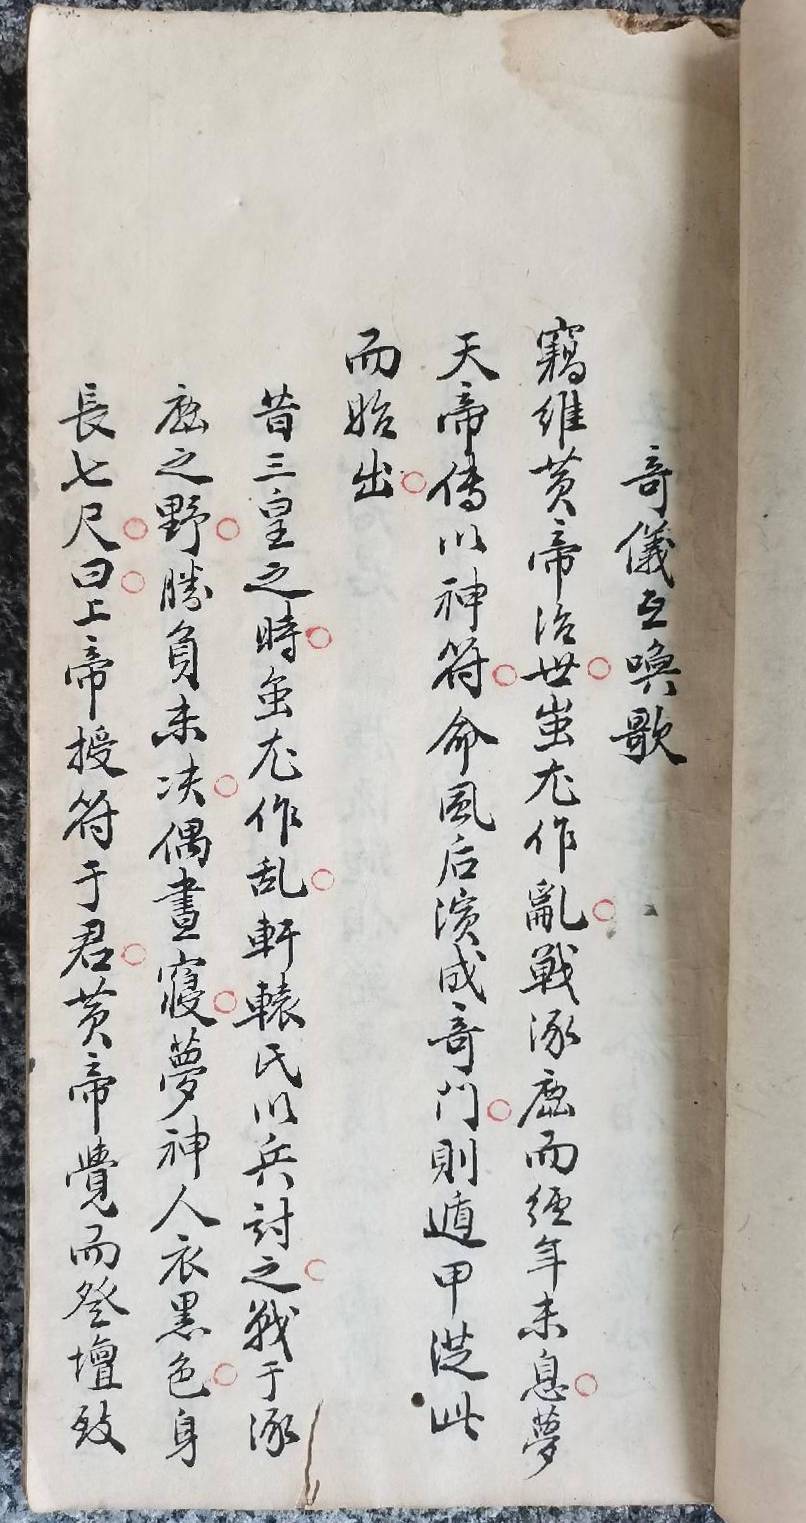 奇儀互喚歌
竊維黃帝治世蚩尤作亂戰涿鹿而經年未息夢
天帝傳以神符命風后演成奇門則遁甲從此
而始出
昔三皇之時蚩尤作乱軒轅氏以兵討之戰于涿
鹿之野勝負未决偶晝寢夢神人衣黑色身
長七尺曰上帝授符于君黃帝覺而登壇致